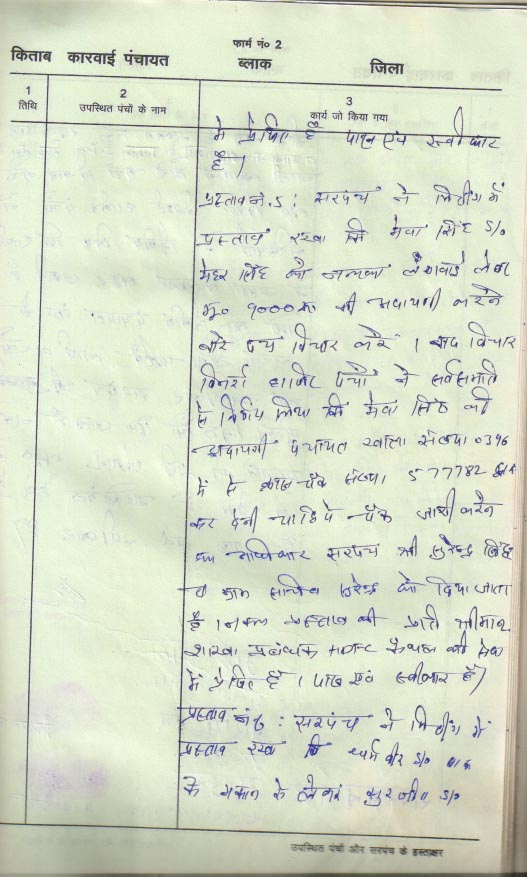 फार्म नं० 2
किताब कारवाई पंचायत ब्लाक जिला
1 2 3
तिथि उपस्थित पंचों के नाम कार्य जो किया गया
में प्रेषित है पास एवं स्वीकार
है।
प्रस्ताव नं. 5 : सरपंच ने मिटींग में
प्रस्ताव रखा कि मेवा सिंह S/o
मेहर सिंह को
मु० १०००रू की अदायगी करने
बारे पंच विचार करें । बाद विचार
विमर्श हाजिर पंचों ने सर्वसमति
से निर्णय लिया कि मेवा सिंह की
अदायगी पंचायत खाता संख्या 0396
में से चैक संख्या 577782
कर देनी चाहिये चैक जारी करने
का अधिकार सरपंच श्री सुरेन्द्र सिंह
व ग्राम सचिव को दिया जाता
है । नकल प्रस्ताव की प्रति श्रीमान
शाखा प्रबंधक कैथल की सेवा
में प्रेषित है । पास एवं स्वीकार है।
प्रस्ताव नं. 6 : सरपंच ने मिटींग में
प्रस्ताव रखा कि धर्मवीर S/o
के मकान से लेकर सुरजीत S/o
उपस्थित पंचों और सरपंच के हस्ताक्षर